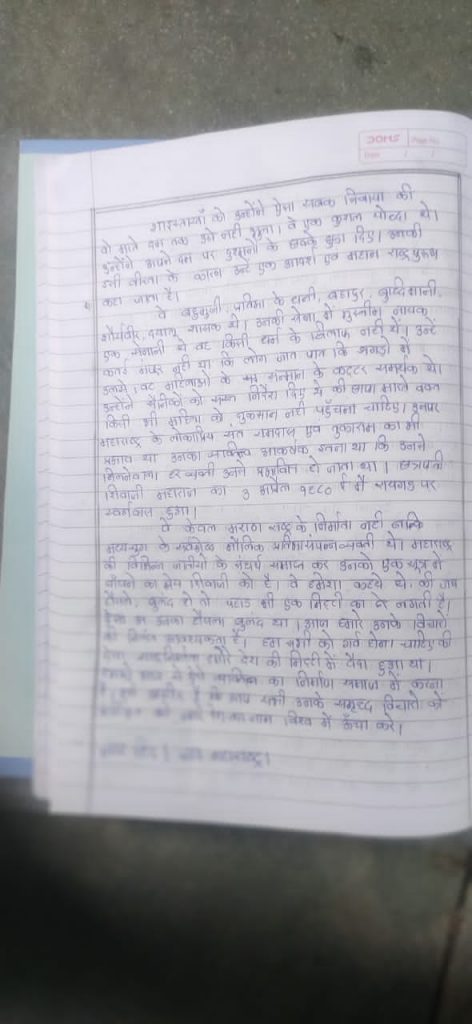 DOMS Page No.
Date / /
शाइस्ताखाँ को उन्होंने ऐसा सबक सिखाया की
वो मरते दम तक उसे नहीं भुला। वे एक कुशल योध्दा थे।
उन्होंने अपने दम पर दुश्मनों के छक्के छुडा दिए। उनकी
इसी वीरता के कारण उन्हे एक आदर्श एवं महान राष्ट्रपुरुष
कहा जाता है।
वे बहुगुणी, प्रतिभा के धनी, बहादुर, बुध्दिमानी,
शौर्यवीर, दयालु शासक थे। उनकी सेना में मुस्लीम नायक,
एक, सेनानी थे वह किसी धर्म के खिलाफ नहीं थे। उन्हे
कतई गंवार नहीं था कि लोग जात पात कि झगडो में
उलझे। वह महिलाओं के सन्मान के कट्टर समर्थक थे।
उन्होंने सैनिकों को सख्त निर्देश दिए थे की छापा मारते वक्त
किसी भी महिला को नुकसान नहीं पहुँचना चाहिए। उनपर
महाराष्ट्र के लोकप्रिय संत रामदास एवं तुकाराम का भी
प्रभाव था उनका व्यक्तित्व आकर्षक इतना था कि उनसे
मिलनेवाला हर व्यक्ती उनसे प्रभावित हो जाता था। छत्रपती
शिवाजी महाराज का ३ अप्रैल १६८० ई में रायगड पर
स्वर्गवास हुआ।
वे केवल मराठा राष्ट्र के निर्माता नहीं बल्कि
मध्ययुग के सर्वश्रेष्ठ मौलिक प्रतिभासंपन्न व्यक्ती थे। महाराष्ट्र
की विभिन्न जातीयों के संघर्ष समाप्त कर उनको एक सूत्र में
बाँधने का श्रेय शिवाजी को है। वे हमेशा कहते थे, की जब
हौसले, बुलंद हो तो पहाड भी एक मिट्टी का ढेर लगती है।
ऐसा था उनका हौसला बुलंद था। आज हमारे उनके विचारों
की आवश्यकता है। हम सभी को गर्व होना चाहिए की
ऐसा हमारे देश की मिट्टी में पैदा हुआ था।
व्यक्तित्व का निर्माण समाज में करना
है। है कि आप सभी उनके समृध्द विचारों को
का नाम विश्व में ऊँचा करे।
जय महाराष्ट्र।